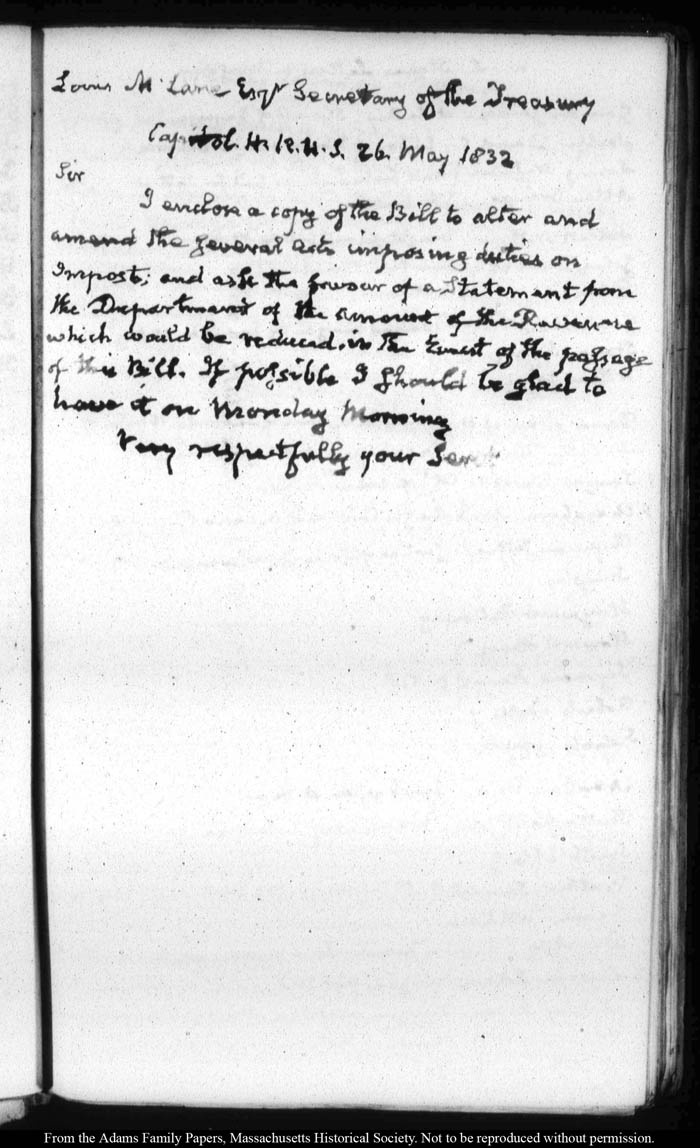 Louis McLane Esqr Secretary of the Treasury
Capitol. H. R. U. S. 26. May 1832
Sir
I enclose a copy of the Bill to alter and
amend the several acts imposing duties on
Imposts; and ask the favour of a Statement from
the Department of the amount of the Revenue
which would be reduced, in the Event of the passage
of this Bill. If possible I should be glad to
have it on Monday Morning
Very respectfully your Servt
From the Adams Family Papers, Massachusetts Historical Society. Not to be reproduced without permission.